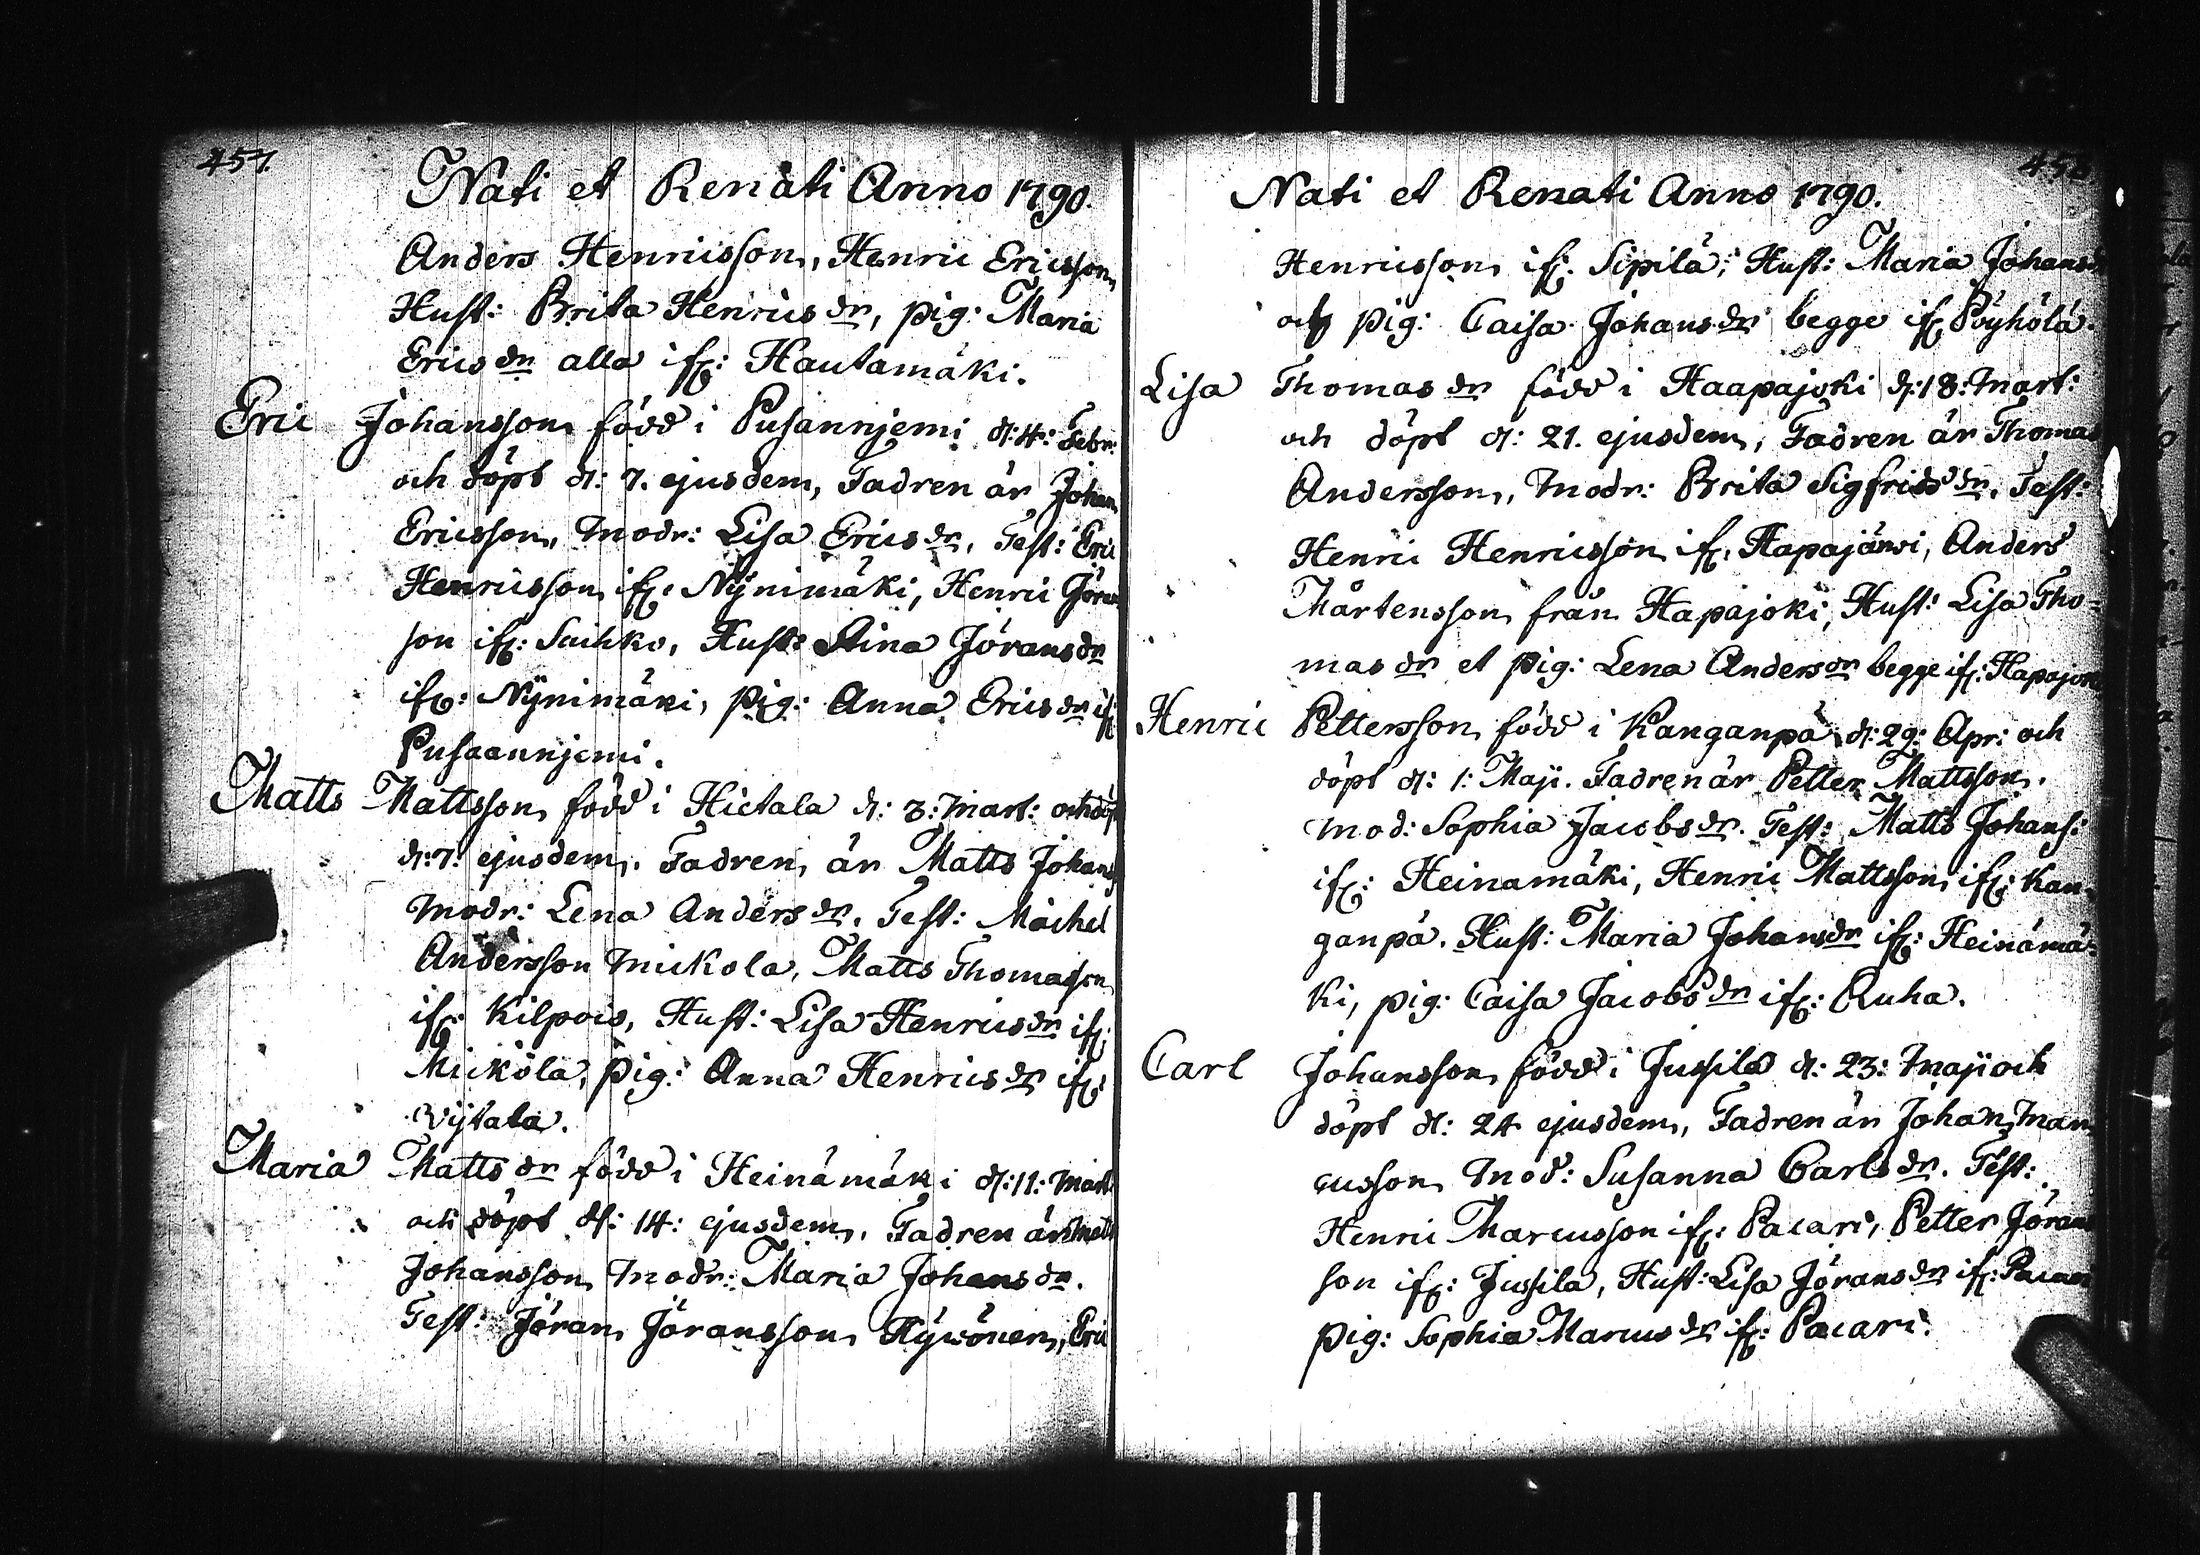 457.
Nati et Renati Anno 1790.
Anders Henricsson, Henric Ericsson,
Hust: Brita Henricsdr, pig: Maria
Ericsdr alla ifr: Hautamäki.
Eric Johansson född i Pusannjemi d: 4: Febr:
och döpt d: 7. ejusdem, Fadren är Johan
Ericsson, Modr: Lisa Ericsdr, Test: Eric
Henricsson ifr: Nynimäki, Henric Jöran
son ifr: Suihko, Hust: Stina Jöransdr
ifr: Nÿnimäki, pig: Anna Ericsdr ifr
Pusaannjemi.
Matts Mattsson född i Hietala d: 3: Mart: och döpt
d: 7. ejusdem. Fadren är Matts Johans
Modr: Lena Andersdr. Test: Michel
Andersson Mickola, Matts Thomasson
ifr: Kilpois, Hust: Lisa Henricsdr ifr:
Mickola, pig: Anna Henricsdr ifr:
Wijtala.
Maria Mattsdr född i Heinämäki d: 11: Mart:
och döpt d: 14: ejusdem. Fadren är Matts
Johansson Modr: Maria Johansdr.
Test: Jöran Jöransson Hywönen, Eric
458
Nati et Renati Anno 1790.
Henricsson ifr: Sipilä, Hust: Maria Johansdr
och pig: Caisa Johansdr begge ifr Pöyhölä.
Lisa Thomasdr född i Haapajoki d: 18: Mart:
och döpt d: 21. ejusdem, Fadren är Thomas
Andersson, Modr: Brita Sigfridsdr, Test:
Henric Henricsson ifr: Hapajärwi, Anders
Mårtensson från Hapajoki, Hust: Lisa Tho-
masdr et pig: Lena Andersdr begge ifr: Hapajoki
Henric Pettersson född i Kanganpä d: 29: Apr: och
döpt d: 1: Maji. Fadren är Petter Mattsson.
Mod: Sophia Jacobsdr. Test: Matts Johans:
ifr: Heinamäki, Henric Mattsson ifr: Kan-
ganpä. Hust: Maria Johansdr ifr: Heinämä-
ki, pig: Caisa Jacobsdr ifr: Ruha.
Carl Johansson född i Jussila d: 23: Maji och
döpt d: 24 ejusdem, Fadren är Johan Mar
cusson Mod: Susanna Carlsdr. Test:
Henric Marcusson ifr: Pacari, Petter Jöran
son ifr: Jussila, Hust: Lisa Jöransdr ifr: Pacari
pig: Sophia Marcusdr ifr: Pacari.